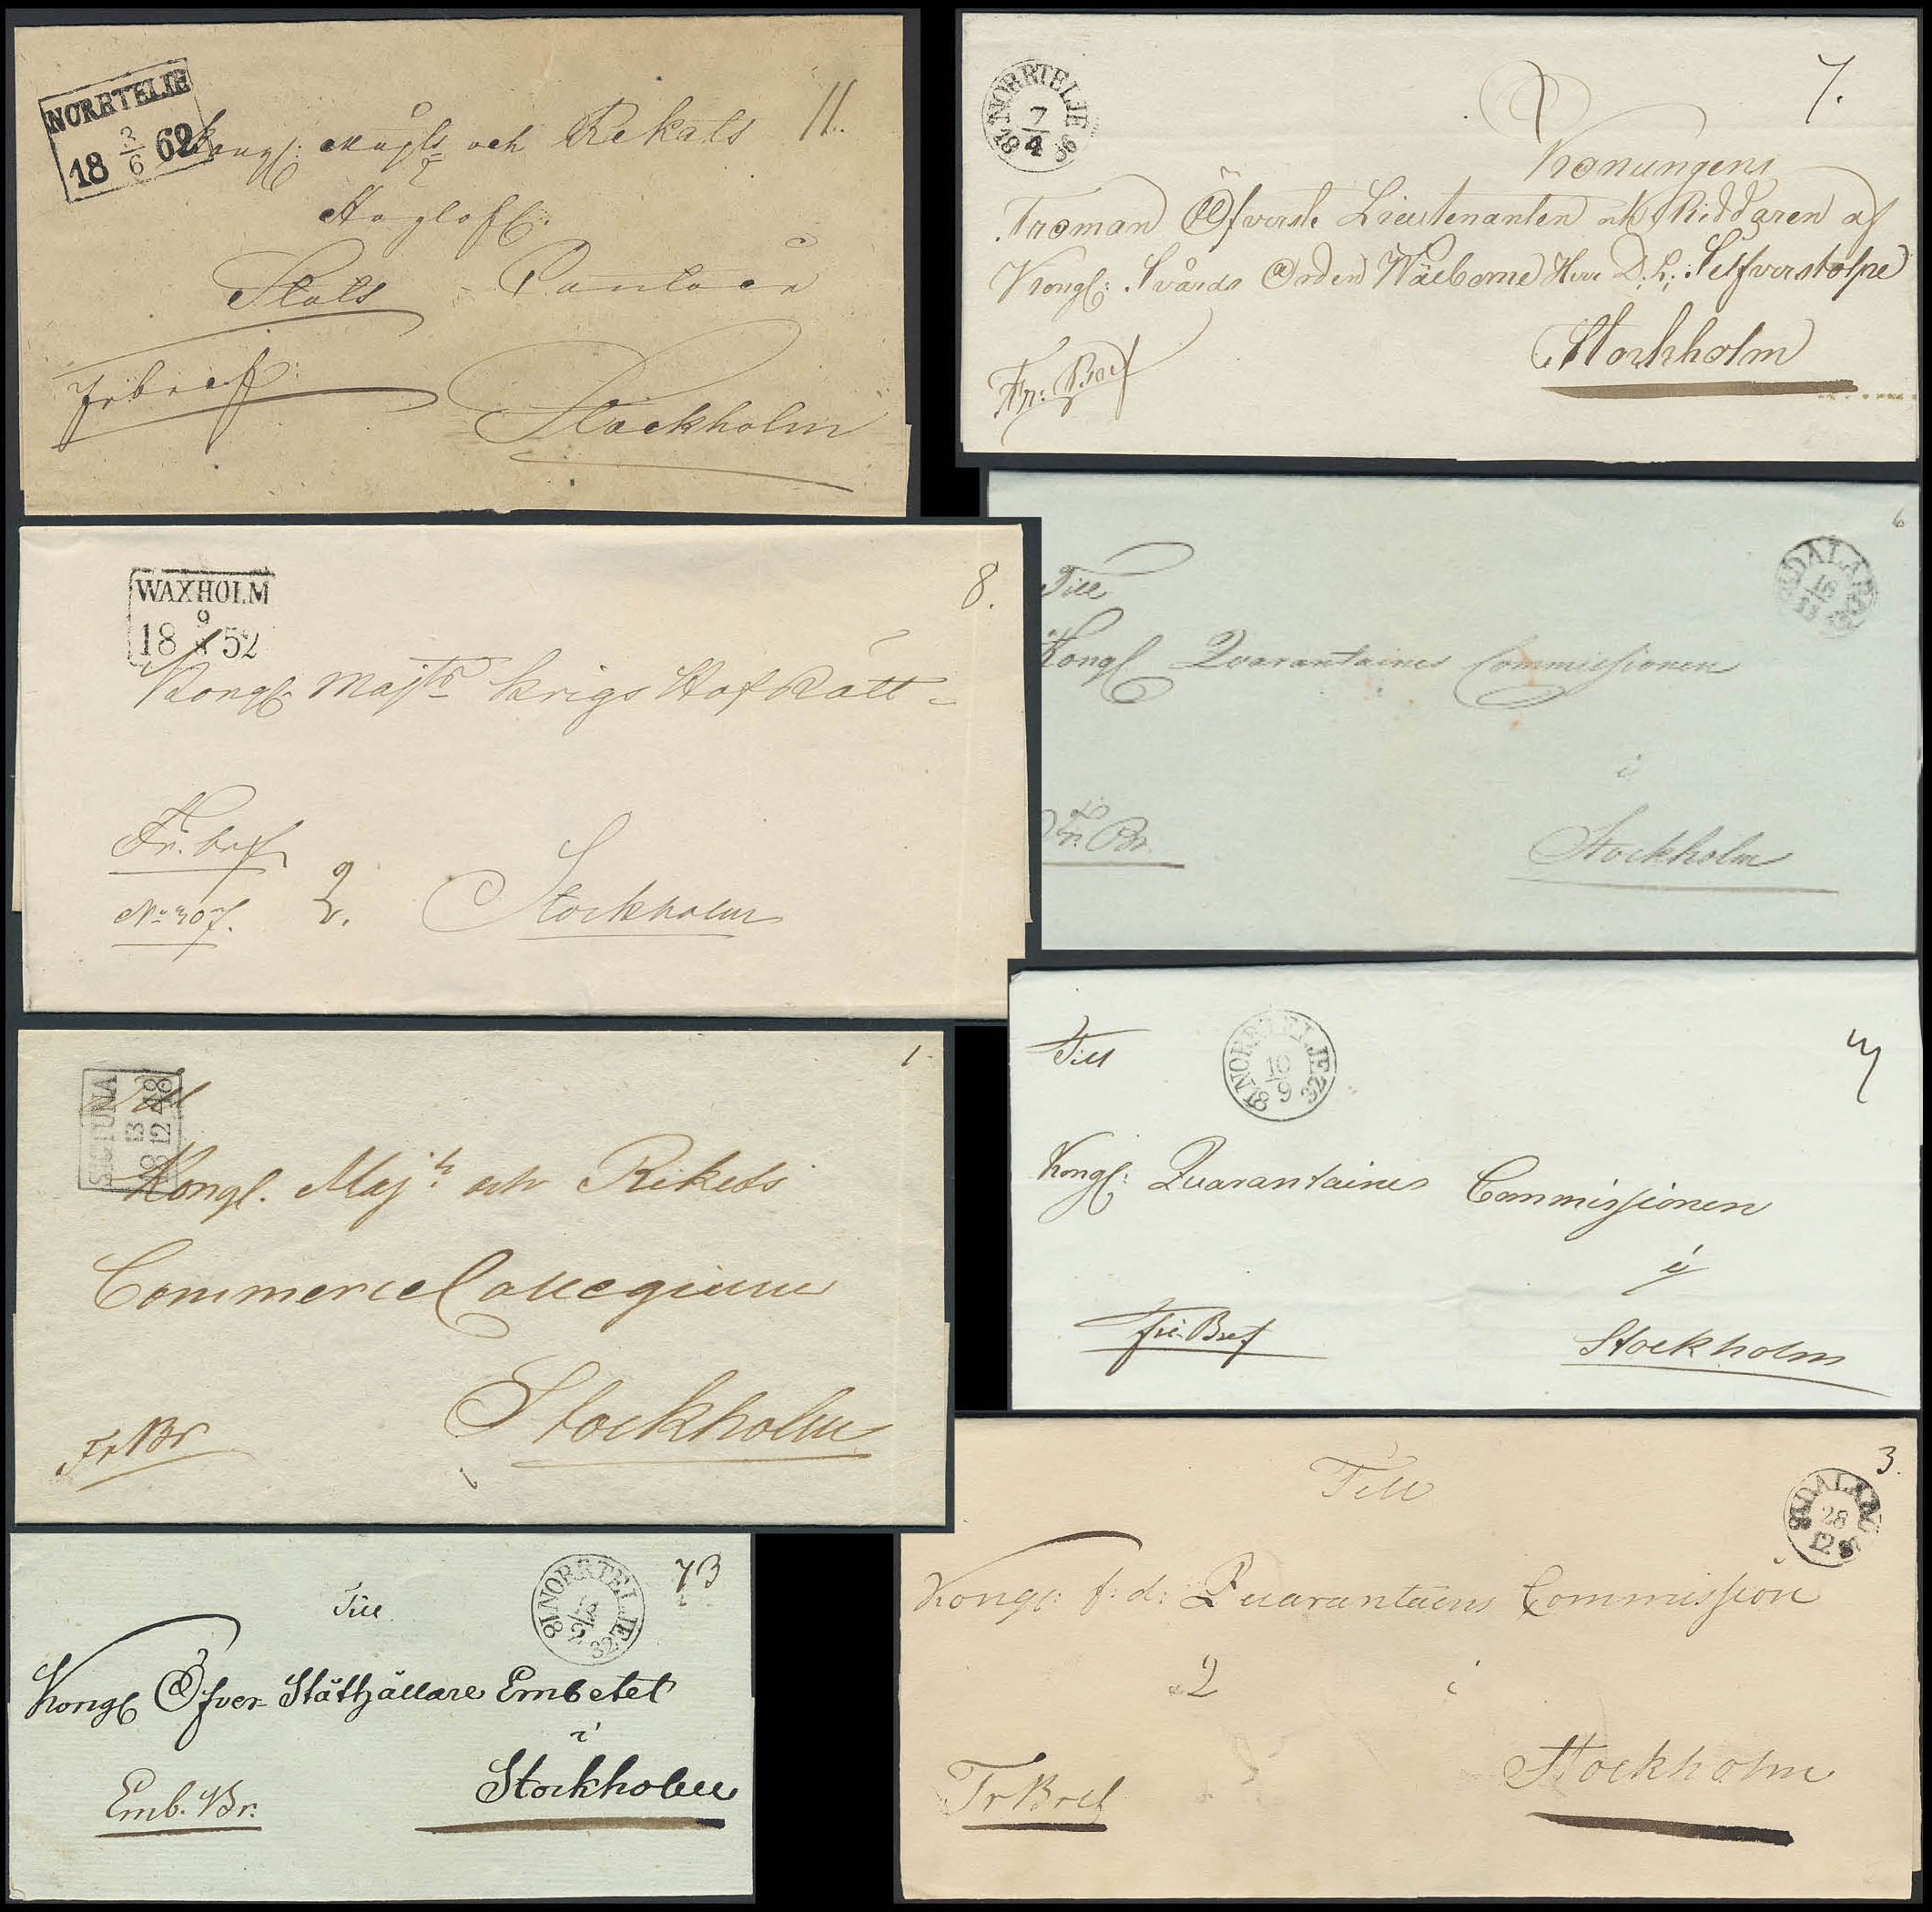 NORRTELJE
18 3/6 62
Kongl: Majts och Rikets
11.
Höglofl.
Stats Contoir
Frbref
Stockholm
NORRTELJE
7/4
18 36
7.
Konungens
Troman Öfverste Lieutenanten och Riddaren af
Kongl: Svärds Orden Wälborne Herr D: L: Silfverstolpe
Fr: Bref
Stockholm
WAXHOLM
18 9/ 52
8.
Kongl: Majts Krigs Hof Rätt
Fr. bref
No 307.
2.
Stockholm
6
DALARÖ
16
Till
Kongl Quarantaines Commissionen
i
Fr. Br.
Stockholm
SIGTUNA
13
18 12 48
1.
Till
Kongl. Majts och Rikets
Commerce Collegium
Fr Br
Stockholm
Till
NORRTELJE
10/9
18 32
3
Kongl: Quarantaines Commissionen
i
Fri Bref
Stockholm
NORRTELJE
18 32
73
Till
Kongl Öfver Ståthållare Embetet
i
Emb. Br.
Stockholm
3.
DALARÖ
28
12
Till
Kongl: f: d: Quarantäins Commission
2
i
Fr Bref
Stockholm